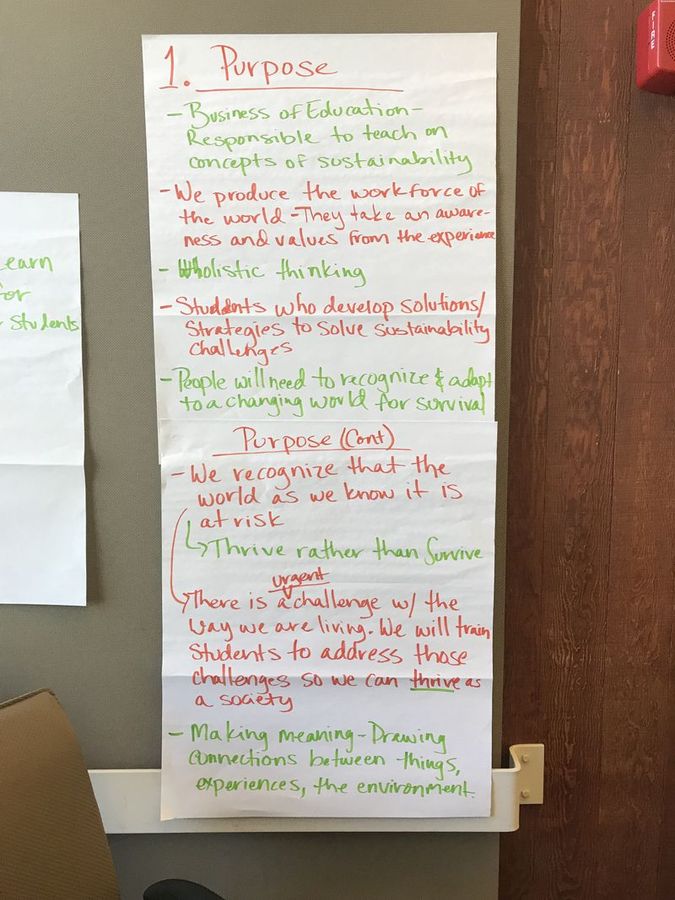 FIRE
1. Purpose
- Business of Education-
Responsible to teach on
concepts of sustainability
- We produce the workforce of
the world - They take an aware-
ness and values from the experience
- Wholistic thinking
- Students who develop solutions/
Strategies to solve sustainability
challenges
- People will need to recognize & adapt
to a changing world for survival
Purpose (Cont)
- We recognize that the
world as we know it is
at risk
Thrive rather than Survive
urgent
There is a challenge w/ the
way we are living. We will train
students to address those
challenges so we can thrive as
a society
- Making meaning - Drawing
connections between things,
experiences, the environment.
earn
for
students